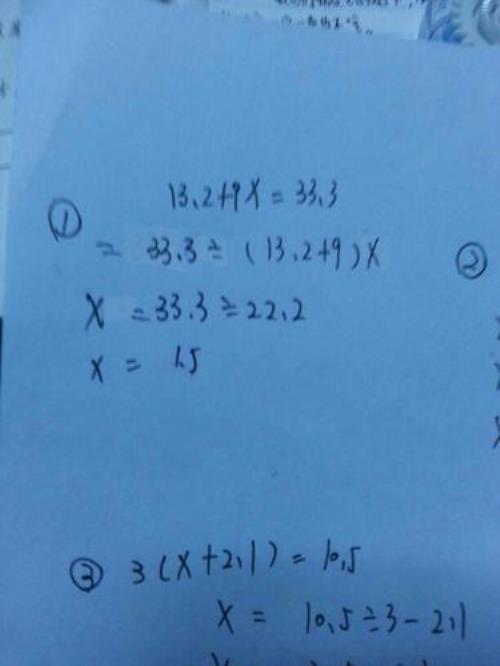 ① 13.2+9X=33.3
= 33.3÷(13.2+9)X
X =33.3÷22.2
x = 1.5
②
③ 3(X+2.1)=10.5
X = 10.5÷3-2.1